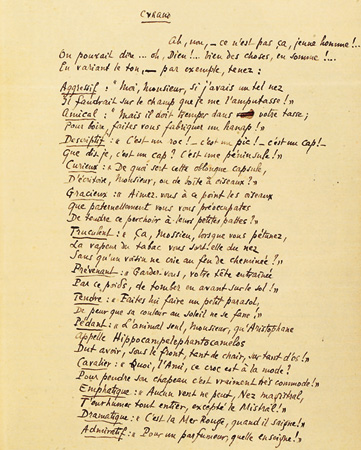 CYRANO
Ah, non, — ce n'est pas ça, jeune homme !...
On pouvait dire ... oh, Dieu !.. bien des choses, en somme !...
En variant le ton, — par exemple, tenez :
Aggressif : « Moi, Monsieur, si j'avais un tel nez
Il faudrait sur le champ que je me l'amputasse ! »
Amical : « Mais il doit tremper dans votre tasse ;
Pour boire, faites vous fabriquer un hanap ! »
Descriptif : « C'est un roc !— c'est un pic !— c'est un cap !—
Que dis-je, c'est un cap ? C'est une péninsule ! »
Curieux : « De quoi sert cette oblongue capsule,
D'écritoire, Monsieur, ou de boîte à ciseaux ? »
Gracieux : « Aimez vous à ce point les oiseaux
Que paternellement vous vous préoccupates
De tendre ce perchoir à leurs petites pattes ? »
Truculent : « Ça, Mossieu, lorsque vous pétunez,
La vapeur du tabac vous sort-elle du nez
Sans qu'un voisin ne crie au feu de cheminée ? »
Prévenant : « Gardez-vous, votre tête entraînée
Par ce poids, de tomber en avant sur le sol ! »
Tendre : « Faites lui faire un petit parasol,
De peur que sa couleur au soleil ne se fane ! »
Pédant : « L'animal seul, Monsieur, qu'Aristophane
Appelle Hippocampelephantocamelos
Dut avoir, sous le front, tant de chair, sur tant d'os ! »
Cavalier : « Quoi, l'Ami, ce croc est à la mode ?
Pour pendre son chapeau c'est vraiment très commode ! »
Emphatique : « Aucun vent ne peut, Nez magistral,
T'enrhumer tout entier, excepté le Mistral ! »
Dramatique : « C'est la Mer Rouge, quand il saigne ! »
Admiratif : « Pour un parfumeur, quelle enseigne ! »